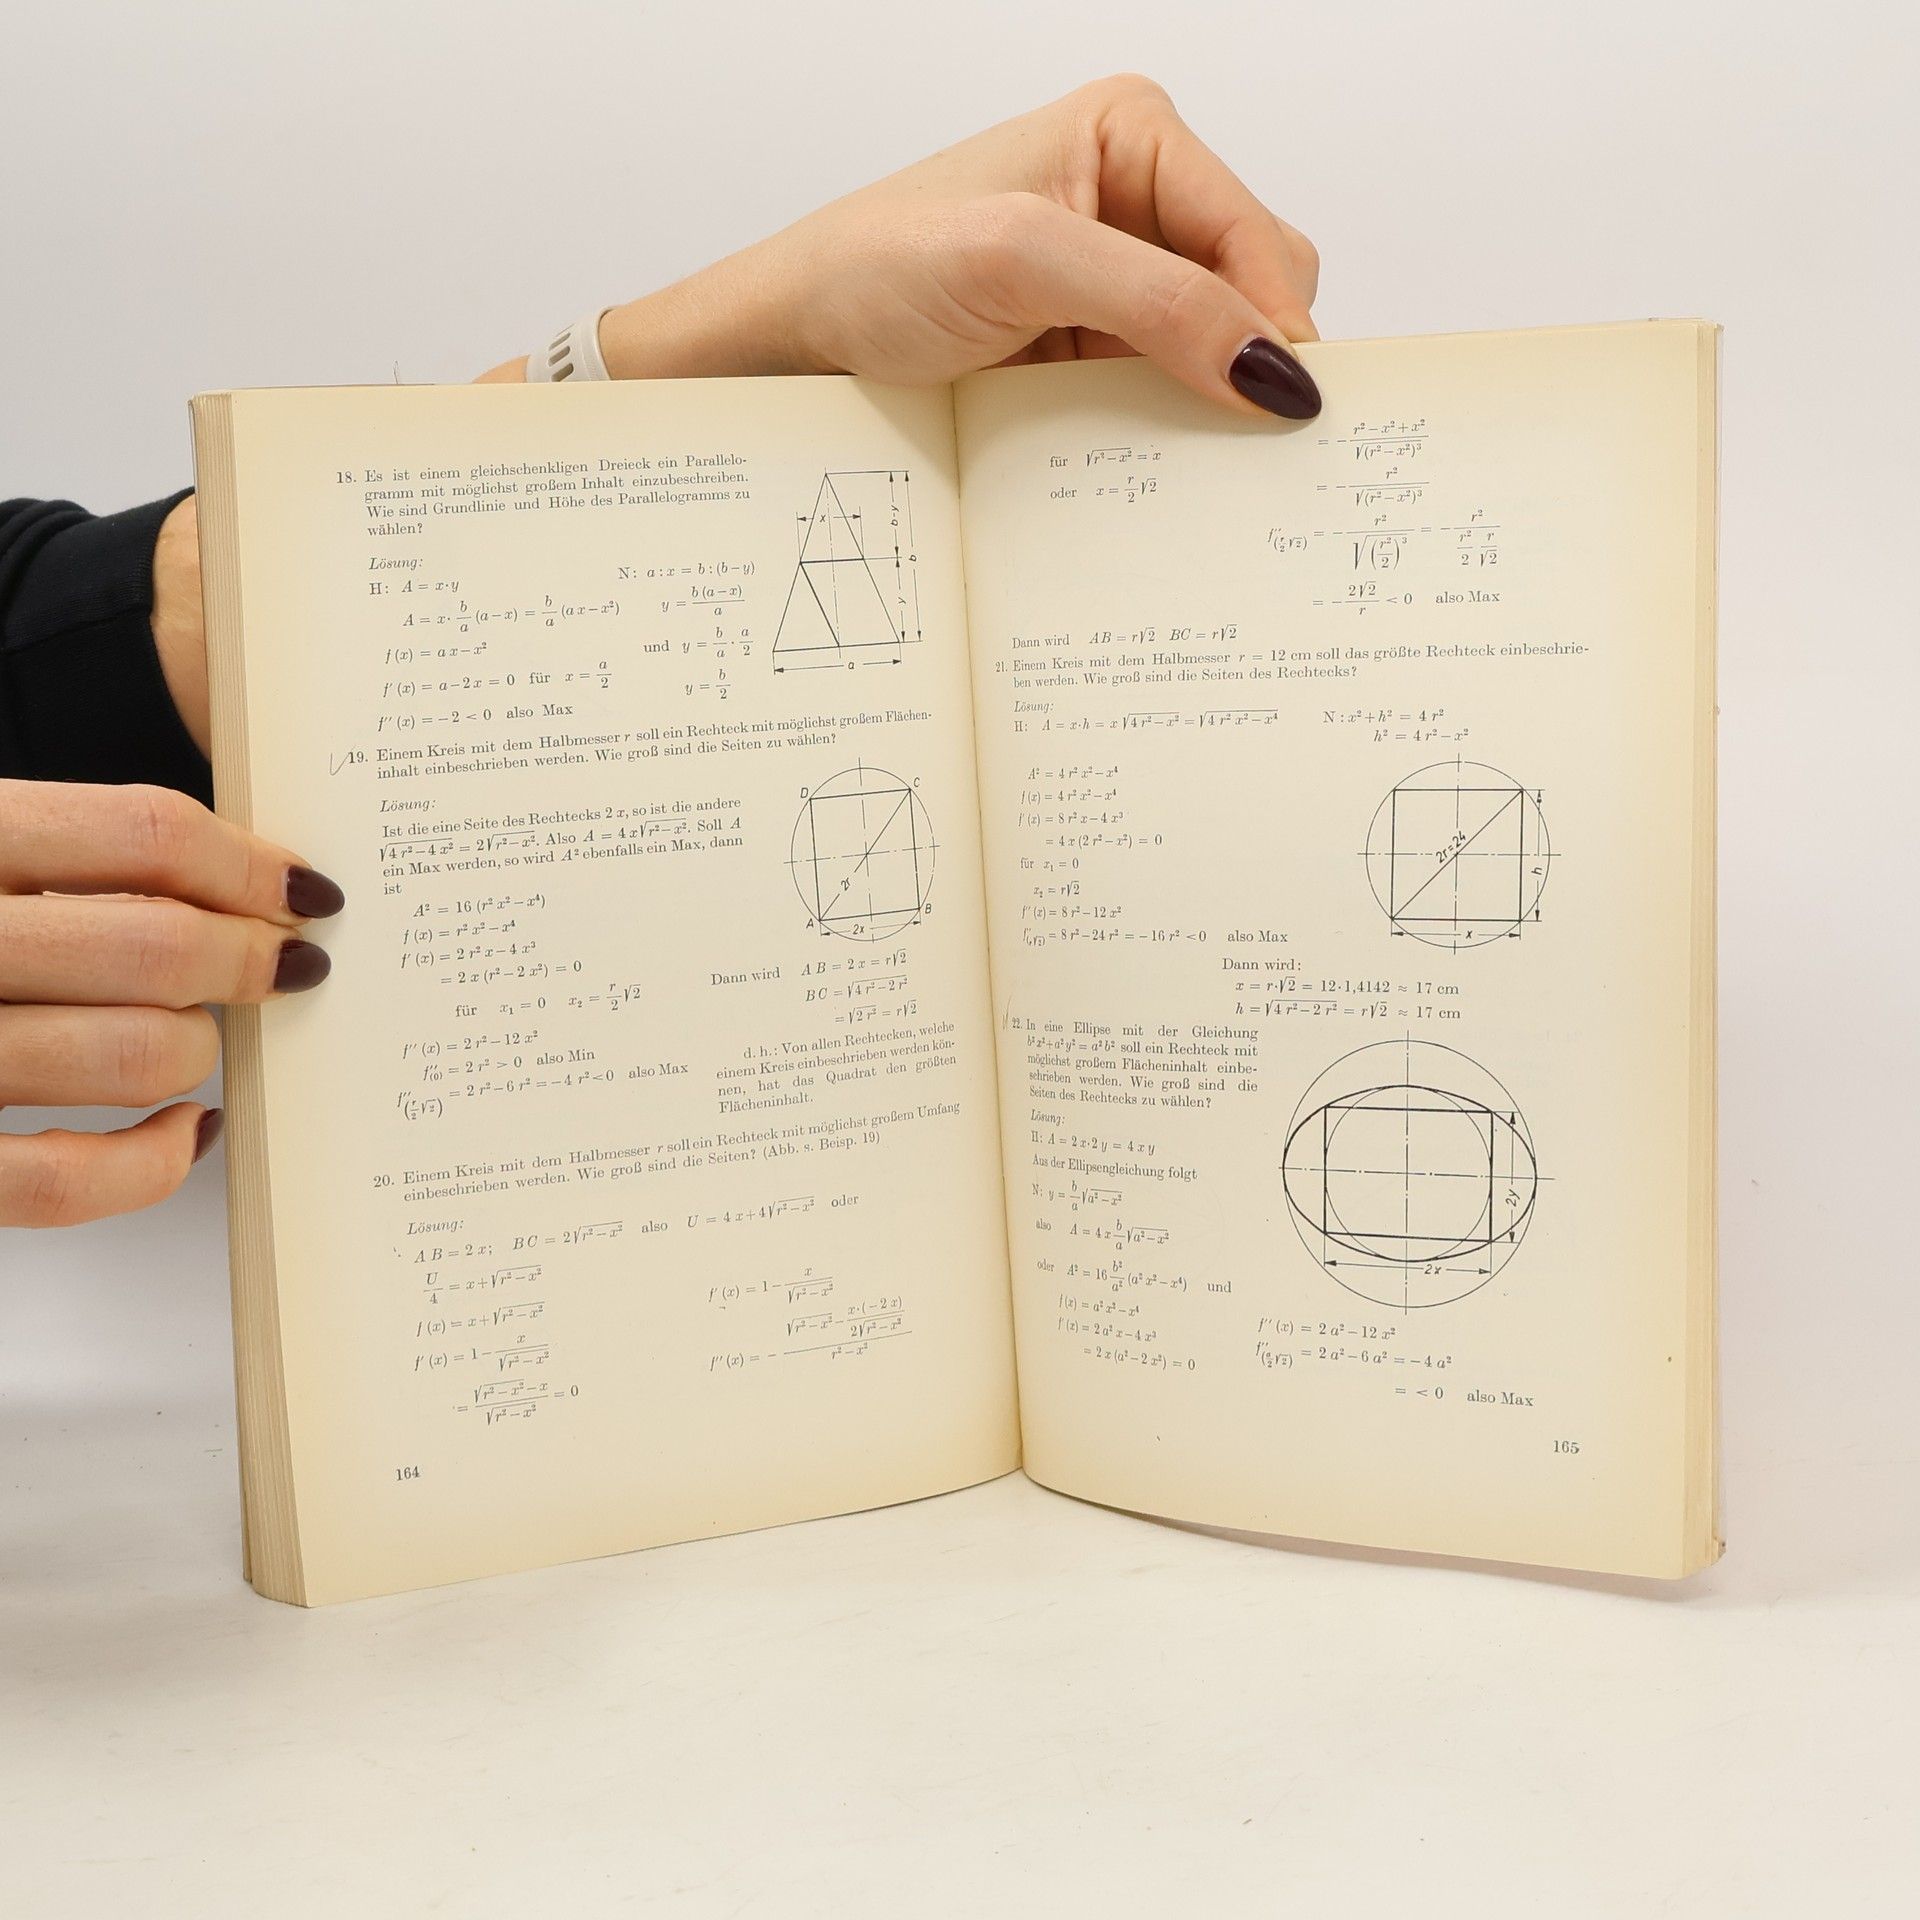 18. Es ist einem gleichschenkligen Dreieck ein Parallelo-
gramm mit möglichst großem Inhalt einzubeschreiben.
Wie sind Grundlinie und Höhe des Parallelogramms zu
wählen?
Lösung:
H: A = x·y
N: a : x = b : (b−y)
A = x· b/a (a−x) = b/a (a x−x²)
y = b (a−x)/a
f (x) = a x−x²
und y = b/a · a/2
f′ (x) = a−2 x = 0 für x = a/2
y = b/2
f″ (x) = −2 < 0 also Max
x
b-y
b
y
a
19. Einem Kreis mit dem Halbmesser r soll ein Rechteck mit möglichst großem Flächen-
inhalt einbeschrieben werden. Wie groß sind die Seiten zu wählen?
Lösung:
Ist die eine Seite des Rechtecks 2 x, so ist die andere
√(4 r²−4 x²) = 2√(r²−x²). Also A = 4 x√(r²−x²). Soll A
ein Max werden, so wird A² ebenfalls ein Max, dann
ist
A² = 16 (r² x²−x⁴)
f (x) = r² x²−x⁴
f′ (x) = 2 r² x−4 x³
= 2 x (r²−2 x²) = 0
für x₁ = 0 x₂ = r/2 √2
f″ (x) = 2 r²−12 x²
f″(0) = 2 r² > 0 also Min
f″(r/2 √2) = 2 r²−6 r² = −4 r² < 0 also Max
D
C
2r
A
B
2x
Dann wird A B = 2 x = r√2
B C = √(4 r²−2 r²)
= √(2 r²) = r√2
d. h.: Von allen Rechtecken, welche
einem Kreis einbeschrieben werden kön-
nen, hat das Quadrat den größten
Flächeninhalt.
20. Einem Kreis mit dem Halbmesser r soll ein Rechteck mit möglichst großem Umfang
einbeschrieben werden. Wie groß sind die Seiten? (Abb. s. Beisp. 19)
Lösung:
A B = 2 x; B C = 2√(r²−x²) also U = 4 x+4√(r²−x²) oder
U/4 = x+√(r²−x²)
f (x) = x+√(r²−x²)
f′ (x) = 1− x/√(r²−x²)
= (√(r²−x²)−x)/√(r²−x²) = 0
f′ (x) = 1− x/√(r²−x²)
f″ (x) = − (√(r²−x²)− x·(−2 x)/(2√(r²−x²)))/(r²−x²)
164
für √(r²−x²) = x
oder x = r/2 √2
= − (r²−x²+x²)/√((r²−x²)³)
= − r²/√((r²−x²)³)
f″(r/2 √2) = − r²/√((r²/2)³) = − r²/(r²/2 · r/√2)
= − 2√2/r < 0 also Max
Dann wird AB = r√2 BC = r√2
21. Einem Kreis mit dem Halbmesser r = 12 cm soll das größte Rechteck einbeschrie-
ben werden. Wie groß sind die Seiten des Rechtecks?
Lösung:
H: A = x·h = x √(4 r²−x²) = √(4 r² x²−x⁴)
N : x²+h² = 4 r²
h² = 4 r²−x²
A² = 4 r² x²−x⁴
f (x) = 4 r² x²−x⁴
f′ (x) = 8 r² x−4 x³
= 4 x (2 r²−x²) = 0
für x₁ = 0
x₂ = r√2
f″ (x) = 8 r²−12 x²
f″(r√2) = 8 r²−24 r² = −16 r² < 0 also Max
2r=24
h
x
Dann wird:
x = r·√2 = 12·1,4142 ≈ 17 cm
h = √(4 r²−2 r²) = r√2 ≈ 17 cm
22. In eine Ellipse mit der Gleichung
b² x²+a² y² = a² b² soll ein Rechteck mit
möglichst großem Flächeninhalt einbe-
schrieben werden. Wie groß sind die
Seiten des Rechtecks zu wählen?
Lösung:
H: A = 2 x·2 y = 4 x y
Aus der Ellipsengleichung folgt
N: y = b/a √(a²−x²)
also A = 4 x b/a √(a²−x²)
oder A² = 16 b²/a² (a² x²−x⁴) und
f (x) = a² x²−x⁴
f′ (x) = 2 a² x−4 x³
= 2 x (a²−2 x²) = 0
2y
2x
f″ (x) = 2 a²−12 x²
f″(a/2 √2) = 2 a²−6 a² = −4 a²
= < 0 also Max
165